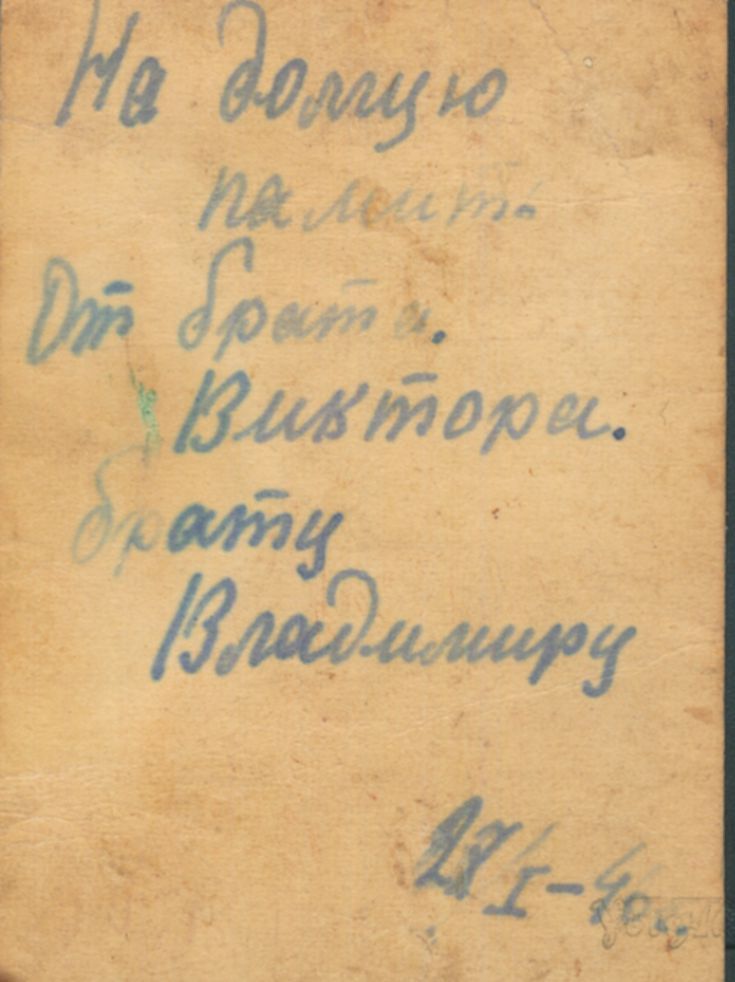 На долгую
память
От брата.
Виктора.
брату
Владимиру
27/I-46.